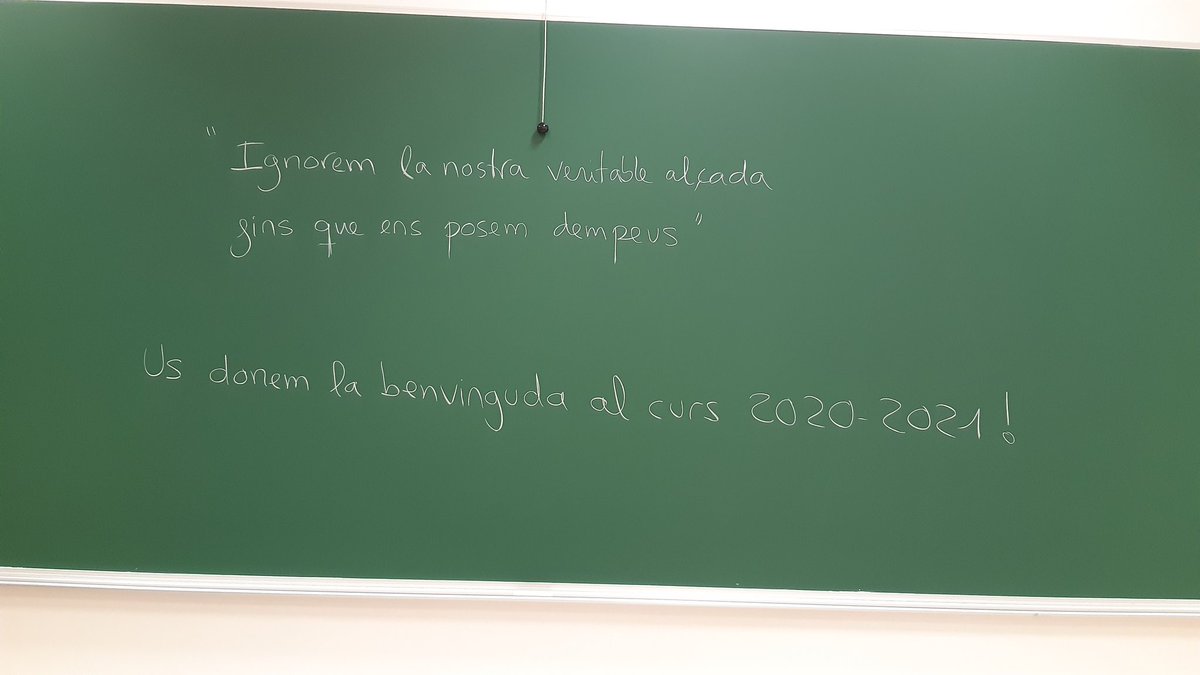 "Ignorem la nostra veritable alçada
fins que ens posem dempeus"
Us donem la benvinguda al curs 2020-2021!